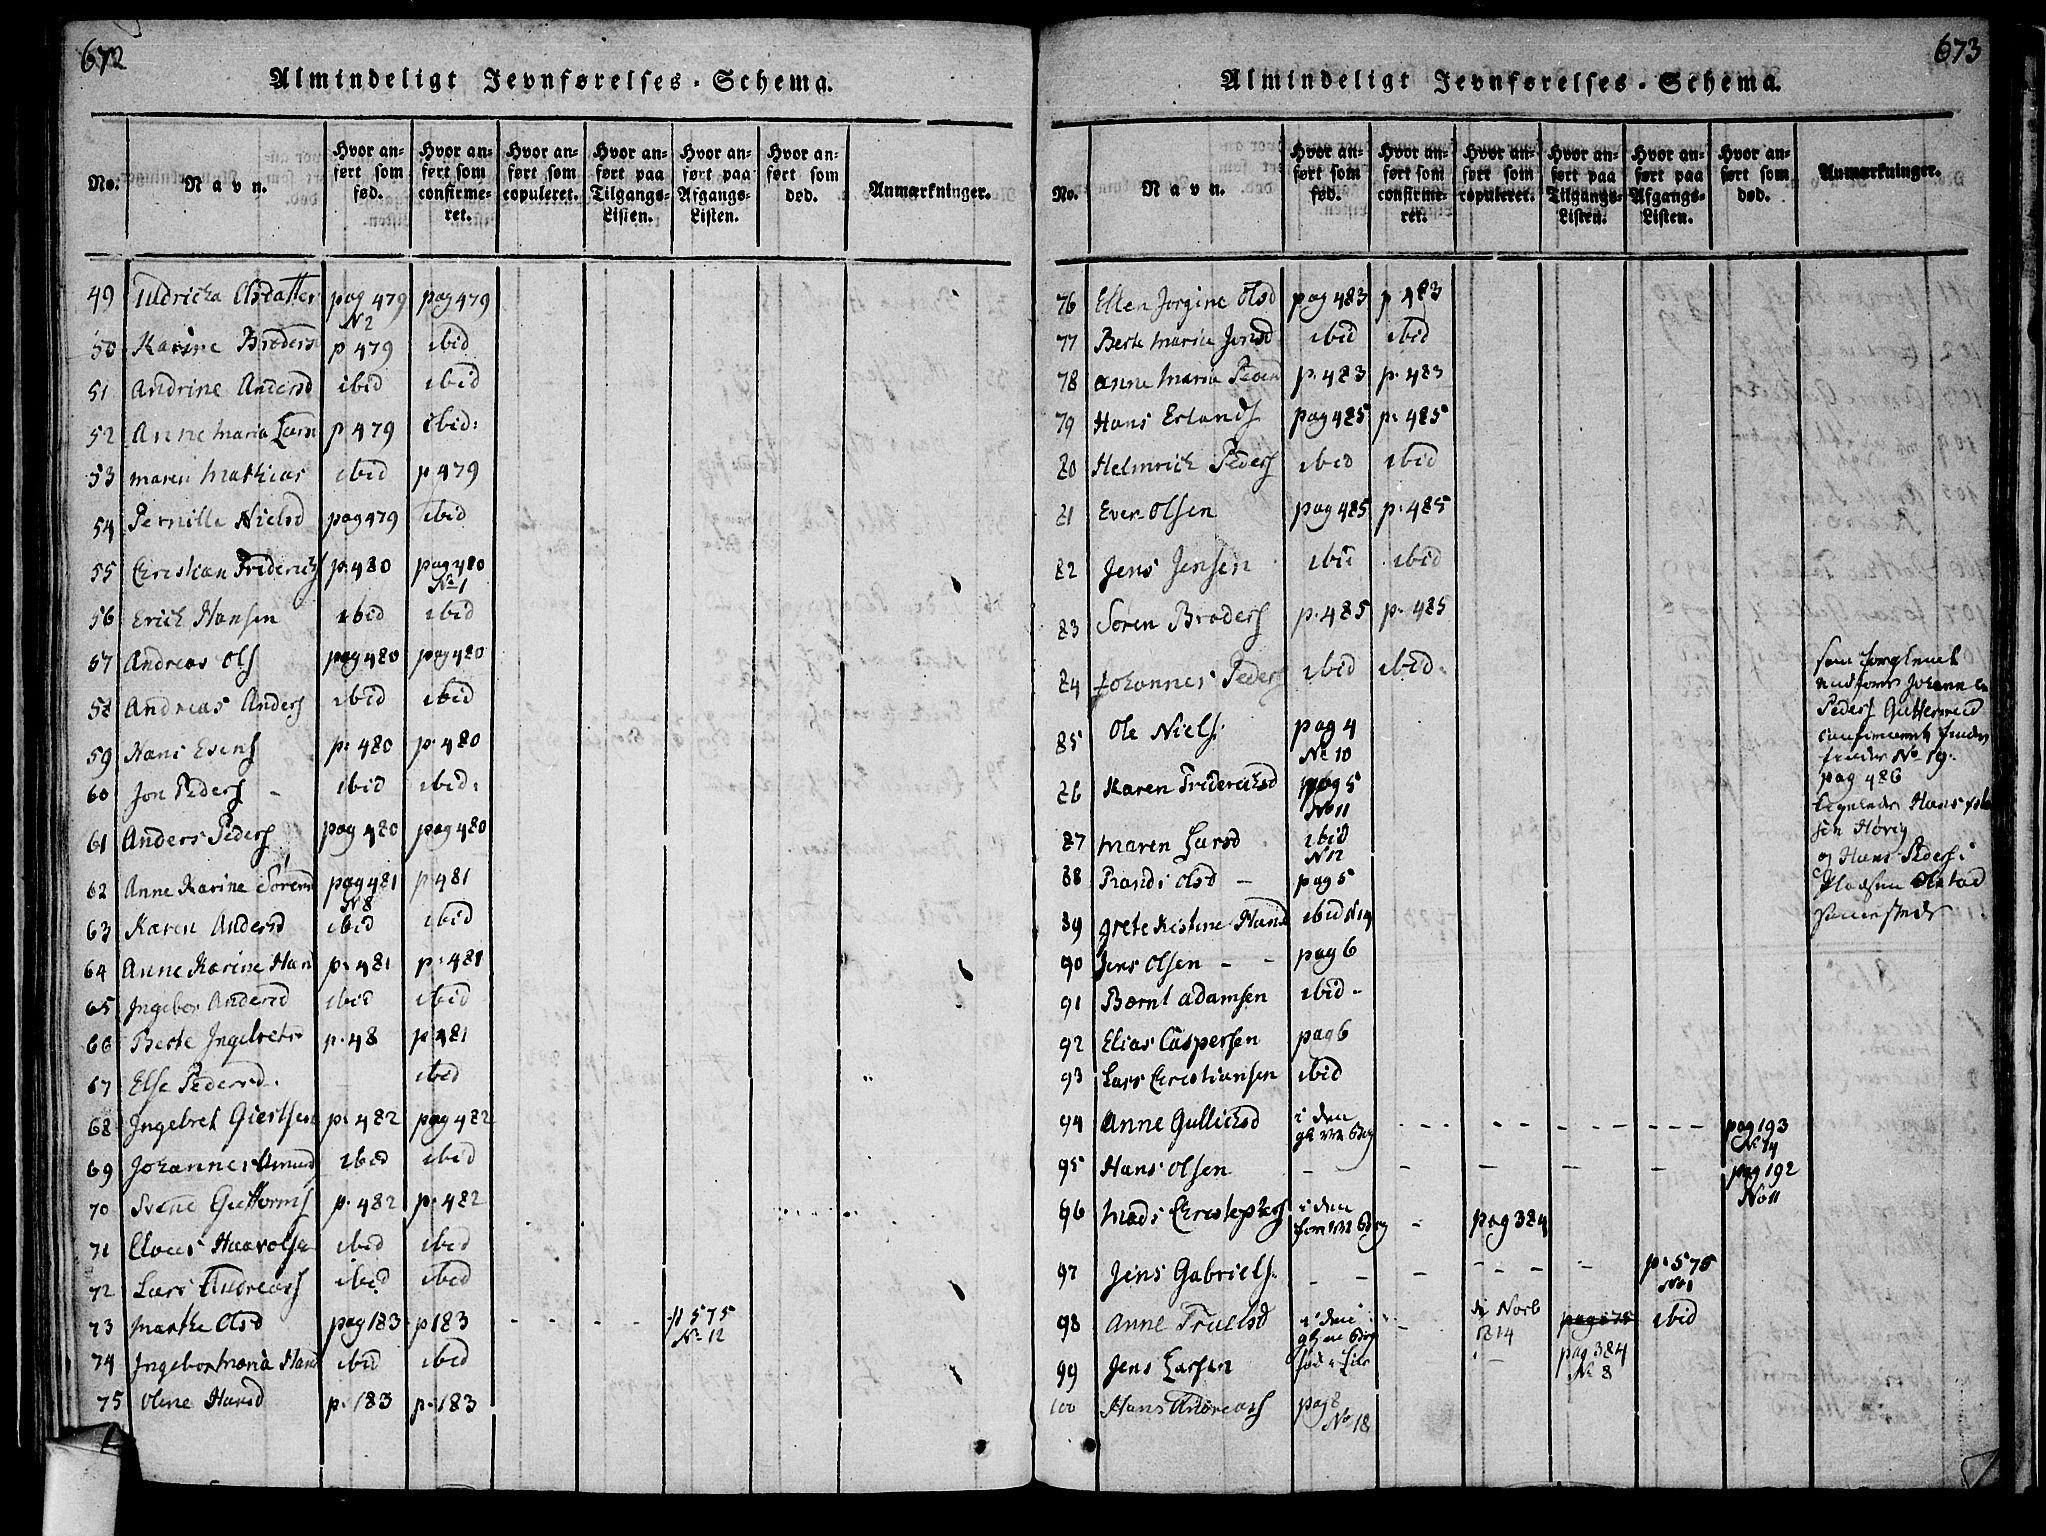 672
Almindeligt Jevnførelses-Schema.
No. Navn. Hvor anført som fød. Hvor anført som confirmeret. Hvor anført som copuleret. Hvor anført paa Tilgangs-Listen. Hvor anført paa Afgangs-Listen. Hvor anført som død. Anmærkninger.
49 Uldricka Olsdatter pag 479 N 2 pag 479
50 Karine Broders p 479 ibid
51 Andrine Andersd ibid ibid
52 Anne Maria Larn p 479 ibid:
53 Maren Mathias ibid p 479
54 Pernille Nielsd pag 479 ibid
55 Christian Friderichs p. 480 pag 480 No 1
56 Erich Hansen ibid ibid
57 Andreas Ols pag 480 pag 480
58 Andreas Anders ibid ibid
59 Hans Evens p. 480 p. 480
60 Jon Peders - ibid ibid:
61 Anders Peders pag 480 pag 480
62 Anne Karine Sørens pag 481 N 8 p 481
63 Karen Andersd ibid ibid
64 Anne Karine Hans p. 481 p. 481
65 Ingebor Andersd ibid ibid
66 Berte Ingebrets p. 48 p. 481
67 Else Pedersd. - ibid
68 Ingebret Giertsen p. 482 pag 482
69 Johannes Amund ibid ibid
70 Svene Guttorms p. 482 p. 482
71 Claus Haavolsen ibid ibid
72 Lars Andreass ibid ibid
73 Marthe Olsd pag 183 p 183 - - - - p 575 No 12
74 Ingebor Maria Hans ibid ibid
75 Olene Hansd p. 183 p. 183
673
Almindeligt Jevnførelses-Schema.
No. Navn. Hvor anført som fød. Hvor anført som confirmeret. Hvor anført som copuleret. Hvor anført paa Tilgangs-Listen. Hvor anført paa Afgangs-Listen. Hvor anført som død. Anmærkninger.
76 Ellen Jorgine Olsd pag 483 p 483
77 Berte Maria Jensd ibid ibid
78 Anne Maria p. 483 p. 483
79 Hans Erlands pag 485 p. 485
80 Helmrich Peders ibid ibid
81 Even Olsen pag 485 p. 485
82 Jens Jensen ibid ibid
83 Søren Broders p. 485 p. 485
84 Johannes Peders ibid ibid.
85 Ole Niels: pag 4 No 10
86 Karen Fridericksd pag 5 No 11
87 Maren Larsd ibid N 12
88 Randi Olsd - pag 5
89 Grete Kistine Hansd ibid N 14
90 Jens Olsen - - pag 6
91 Bernt Adamsen ibid -
92 Elias Caspersen pag 6
93 Lars Christiansen ibid
94 Anne Gullichsd i den - - - - - - - - pag 193 No 14
95 Hans Olsen - - - - - pag 192 No 11
96 Mads Christophers i den - pag 384
97 Jens Gabriels. - - - - - - - p. 575 No 1
98 Anne Truelsd i den - 1814 pag 575 ibid
99 Jens Larsen fød i Lier - pag 384 No 8
100 Hans Andreass pag 8 No 18
Peders
No 19.
pag 486
Hans
og Hans Peders: